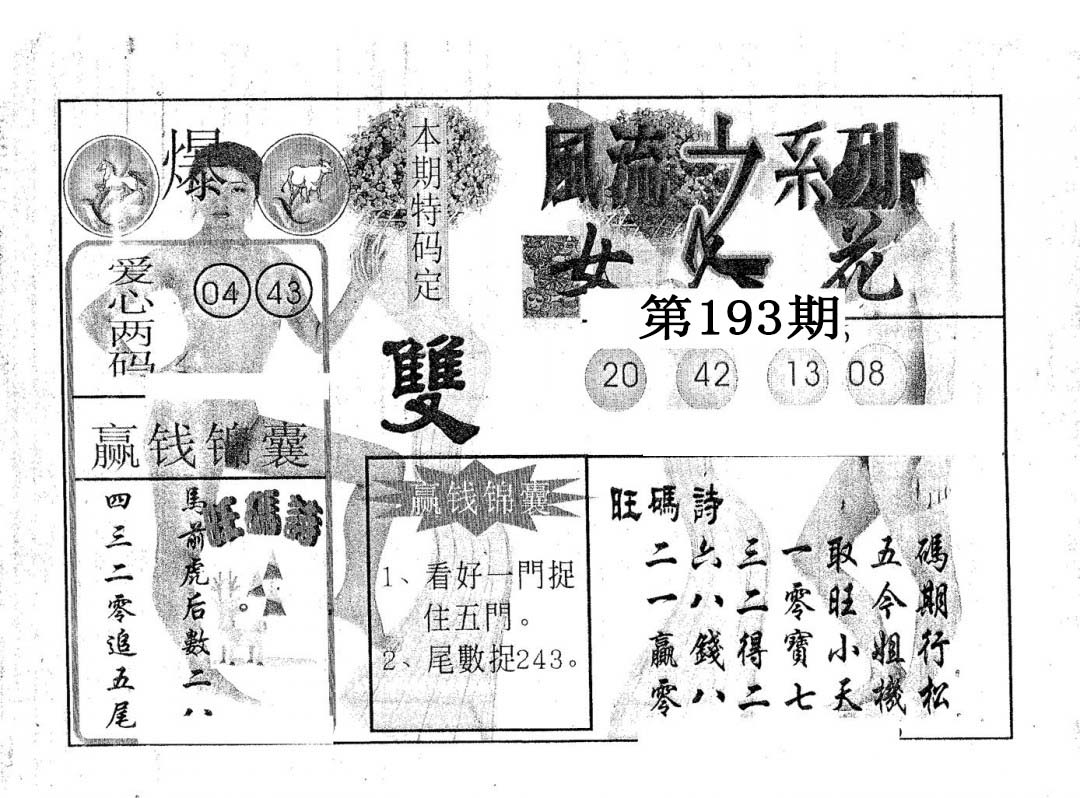 爆
爱心两码
04 43
赢钱锦囊
馬前虎后數二八
四三二零追五尾
旺碼詩
本期特码定
雙
風流之系列
女人花
第193期
20 42 13 08
赢钱锦囊
1、看好一門捉
住五門。
2、尾數捉243。
旺碼詩
碼期行松
五今姐機
取旺小天
一零寶七
三二得二
六八錢八
二一贏零